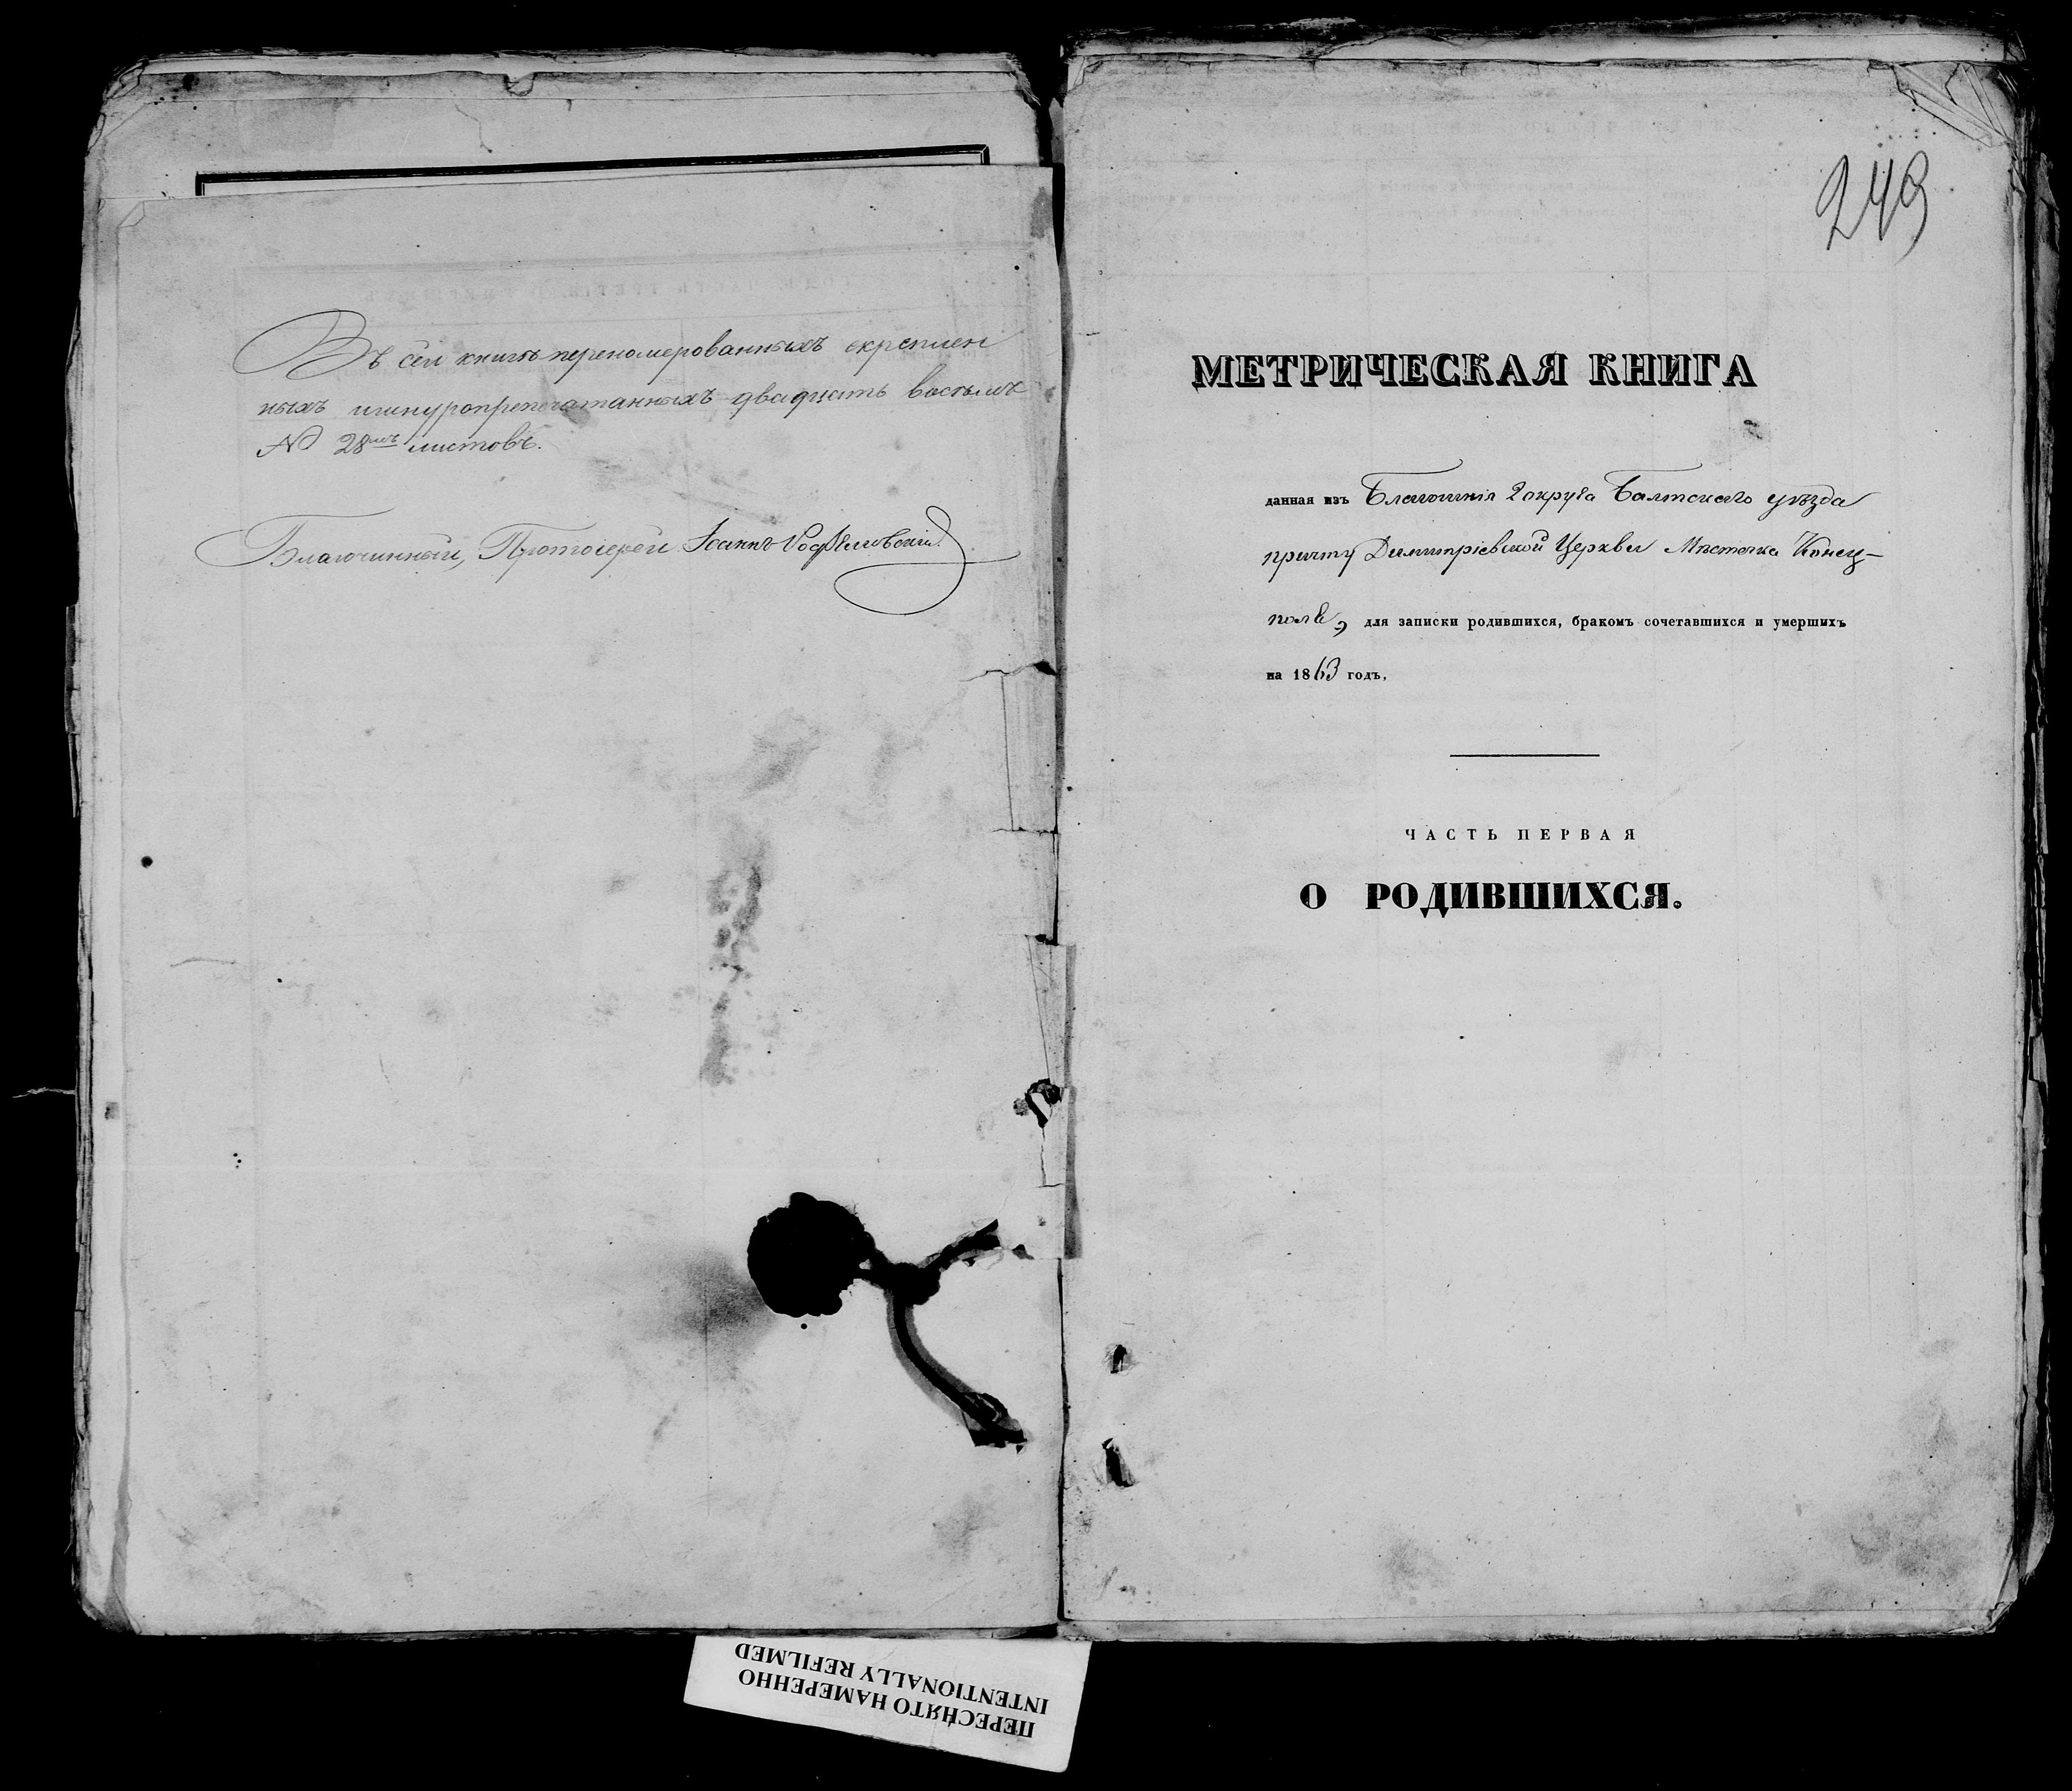 Въ сей книгѣ переномерованныхъ скреплен
ныхъ шнуропрепечатанныхъ двадцать восемь
№ 28мь листовъ.
Благочинный, Протоіерей Іоаннъ
249
МЕТРИЧЕСКАЯ КНИГА
данная изъ Благочинія 2 округа Балтскаго уѣзда
причту Димитріевской Церкви Мѣстечка Конец-
поля, для записки родившихся, бракомъ сочетавшихся и умершихъ
на 1863 годъ,
ЧАСТЬ ПЕРВАЯ
О РОДИВШИХСЯ.
ПЕРЕСНЯТО НАМЕРЕННО
INTENTIONALLY REFILMED